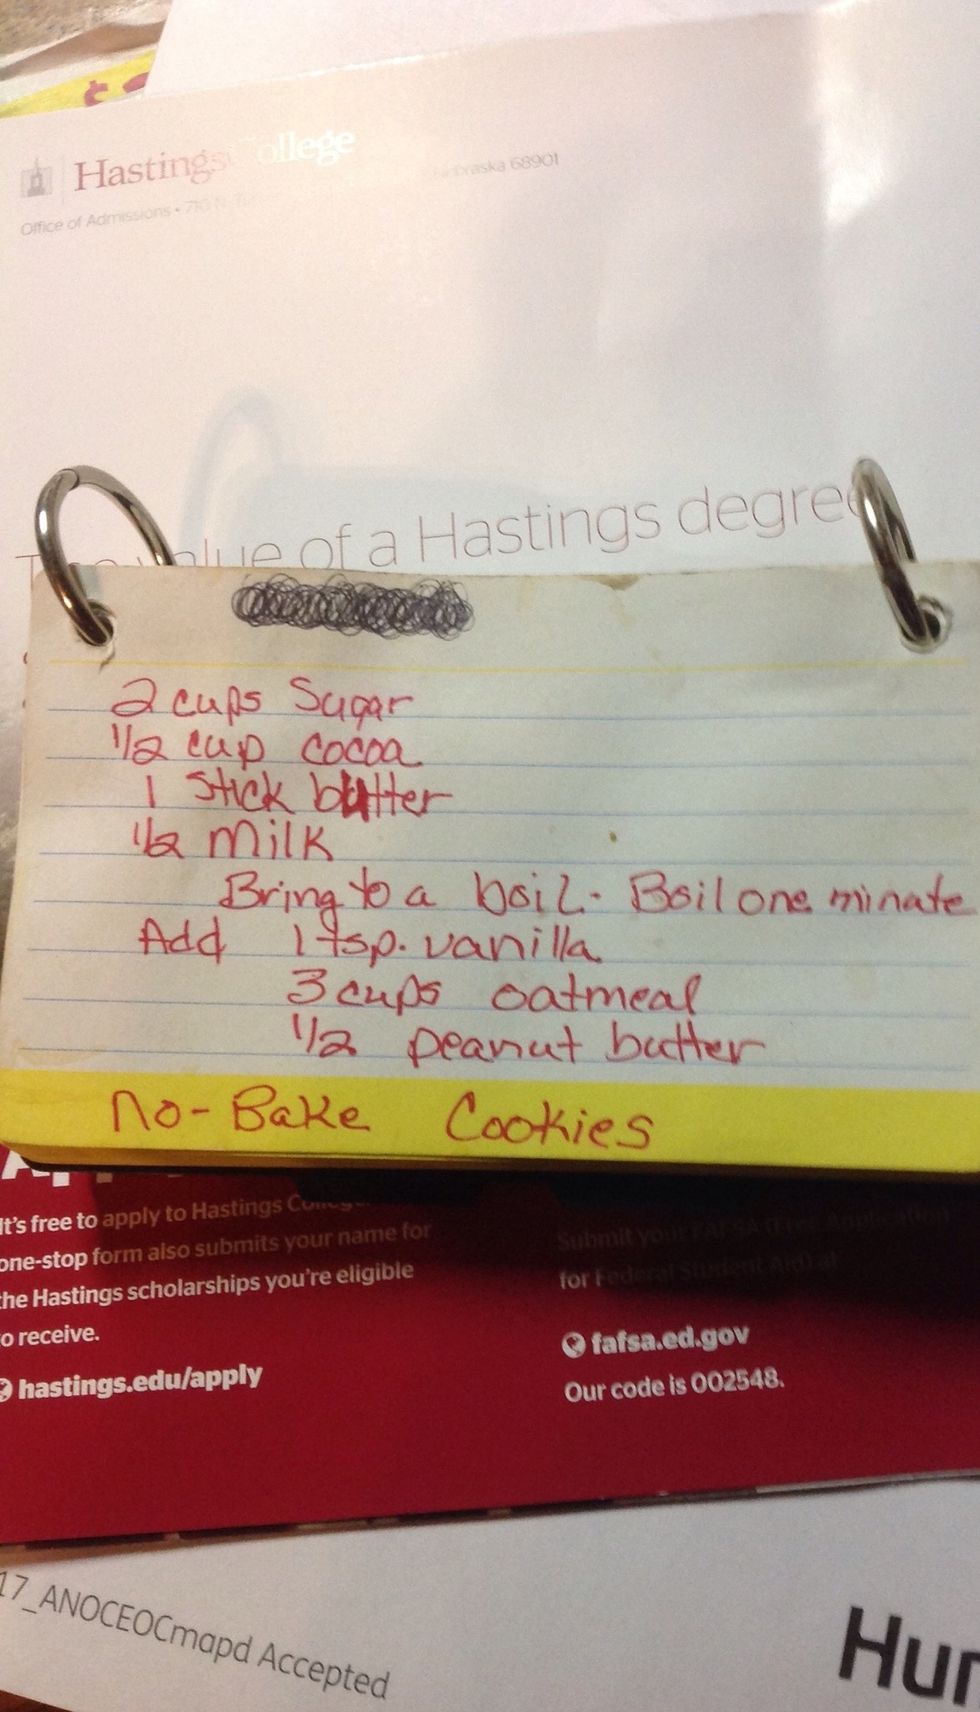 Hastings College
Office of Admissions • 710 N. 68901
value of a Hastings degree
2 cups Sugar
1/2 cup cocoa
1 stick butter
1/2 milk
Bring to a boil. Boil one minate
Add 1 tsp. vanilla
3 cups oatmeal
1/2 peanut butter
No-Bake Cookies
It's free to apply to Hastings
one-stop form also submits your name for
the Hastings scholarships you're eligible
o receive.
hastings.edu/apply
Submit your FAFSA (Free Application
for Federal Student Aid) at
fafsa.ed.gov
Our code is 002548.
17_ANOCEOCmapd Accepted
Hur